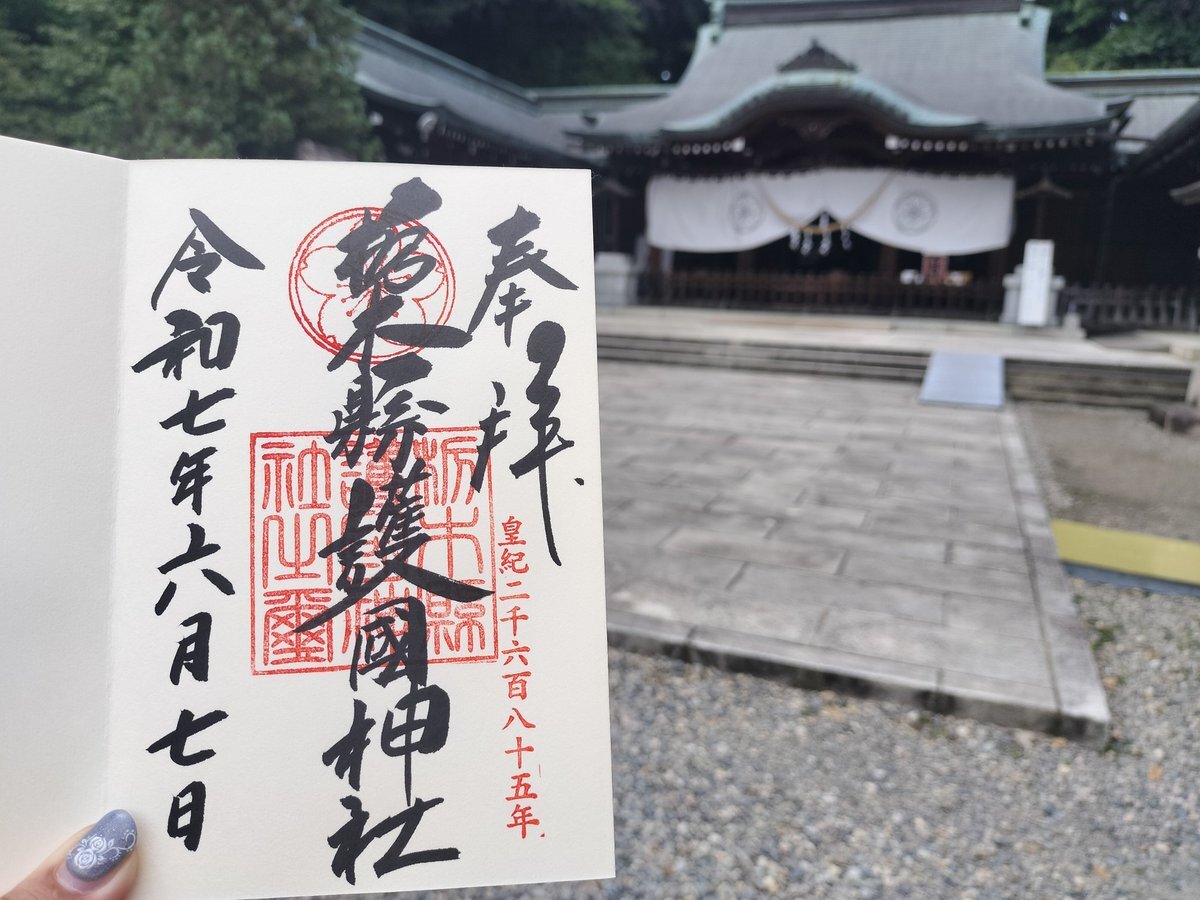 奉拝
皇紀二千六百八十五年
栃木縣護國神社
栃木縣
護國神
社之璽
令和七年六月七日